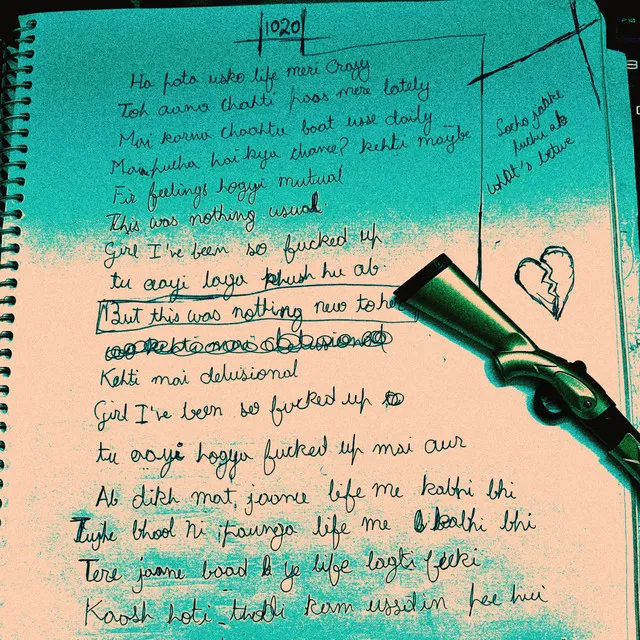 1020
Ha pata usko life meri crazy
Toh aana chahti paas mere lately
Mai karna chaahta baat usse daily
Maine pucha hai kya chance? kehti maybe
Fir feelings hogyi mutual
This was nothing usual
Girl I've been so fucked up
tu aayi laga khush hu ab
But this was nothing new to her
Kehti mai delusional
Girl I've been so fucked up
tu aayi hogya fucked up mai aur
Ab dikh mat jaana life me kabhi bhi
Tujhe bhool hi paunga life me kabhi bhi
Tere jaane baad ye life lagti feeki
Kaash hoti thodi kam ussdin pee hui
Socho jaake
ab
what's